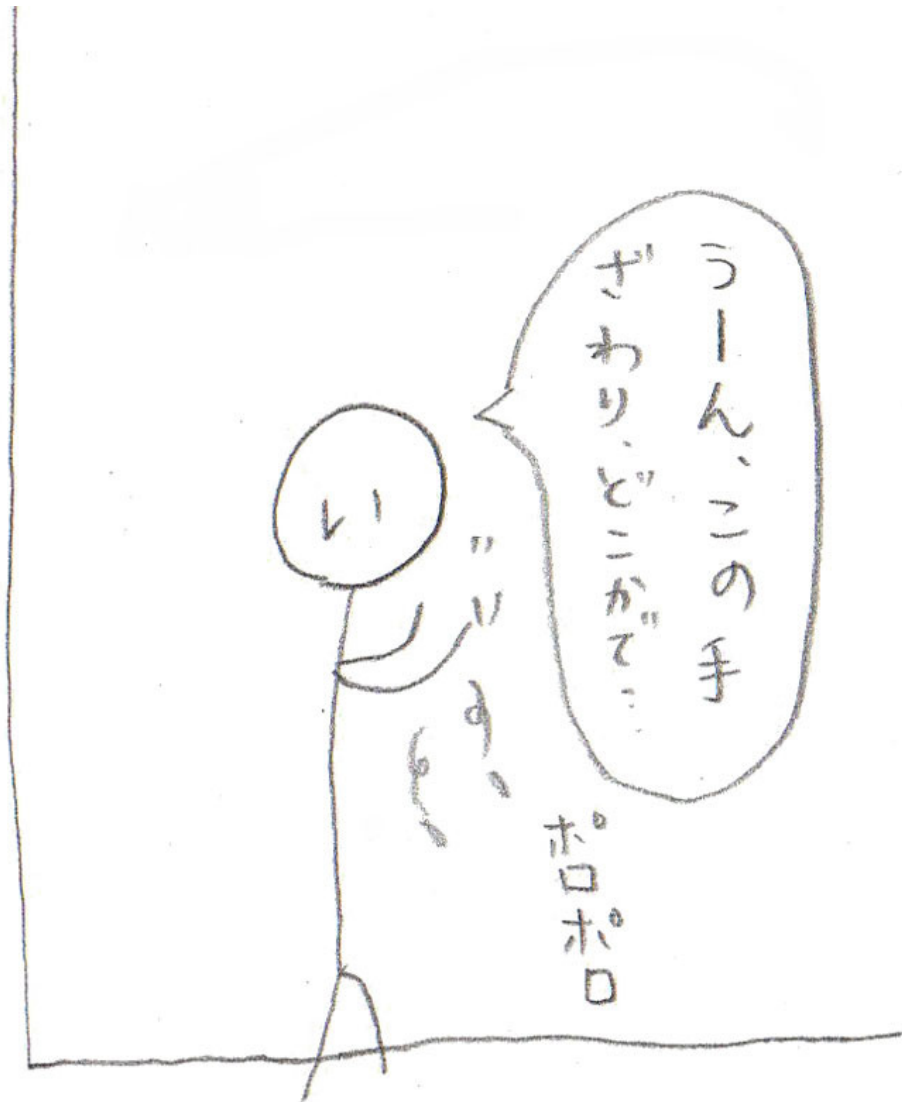 うーん、この手
ざわり、どこかで…
ポロポロ